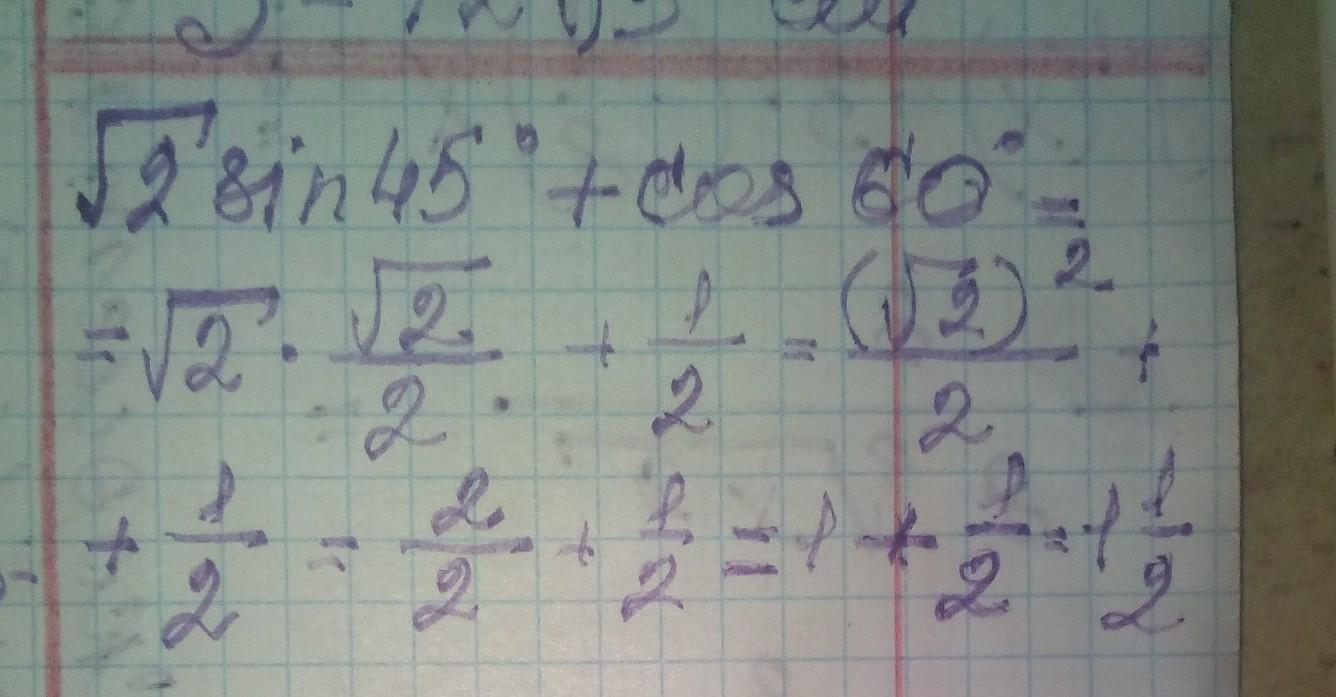 √2 sin 45° + cos 60° =
= √2 · √2/2 + 1/2 = (√2)²/2 +
+ 1/2 = 2/2 + 1/2 = 1 + 1/2 = 1 1/2